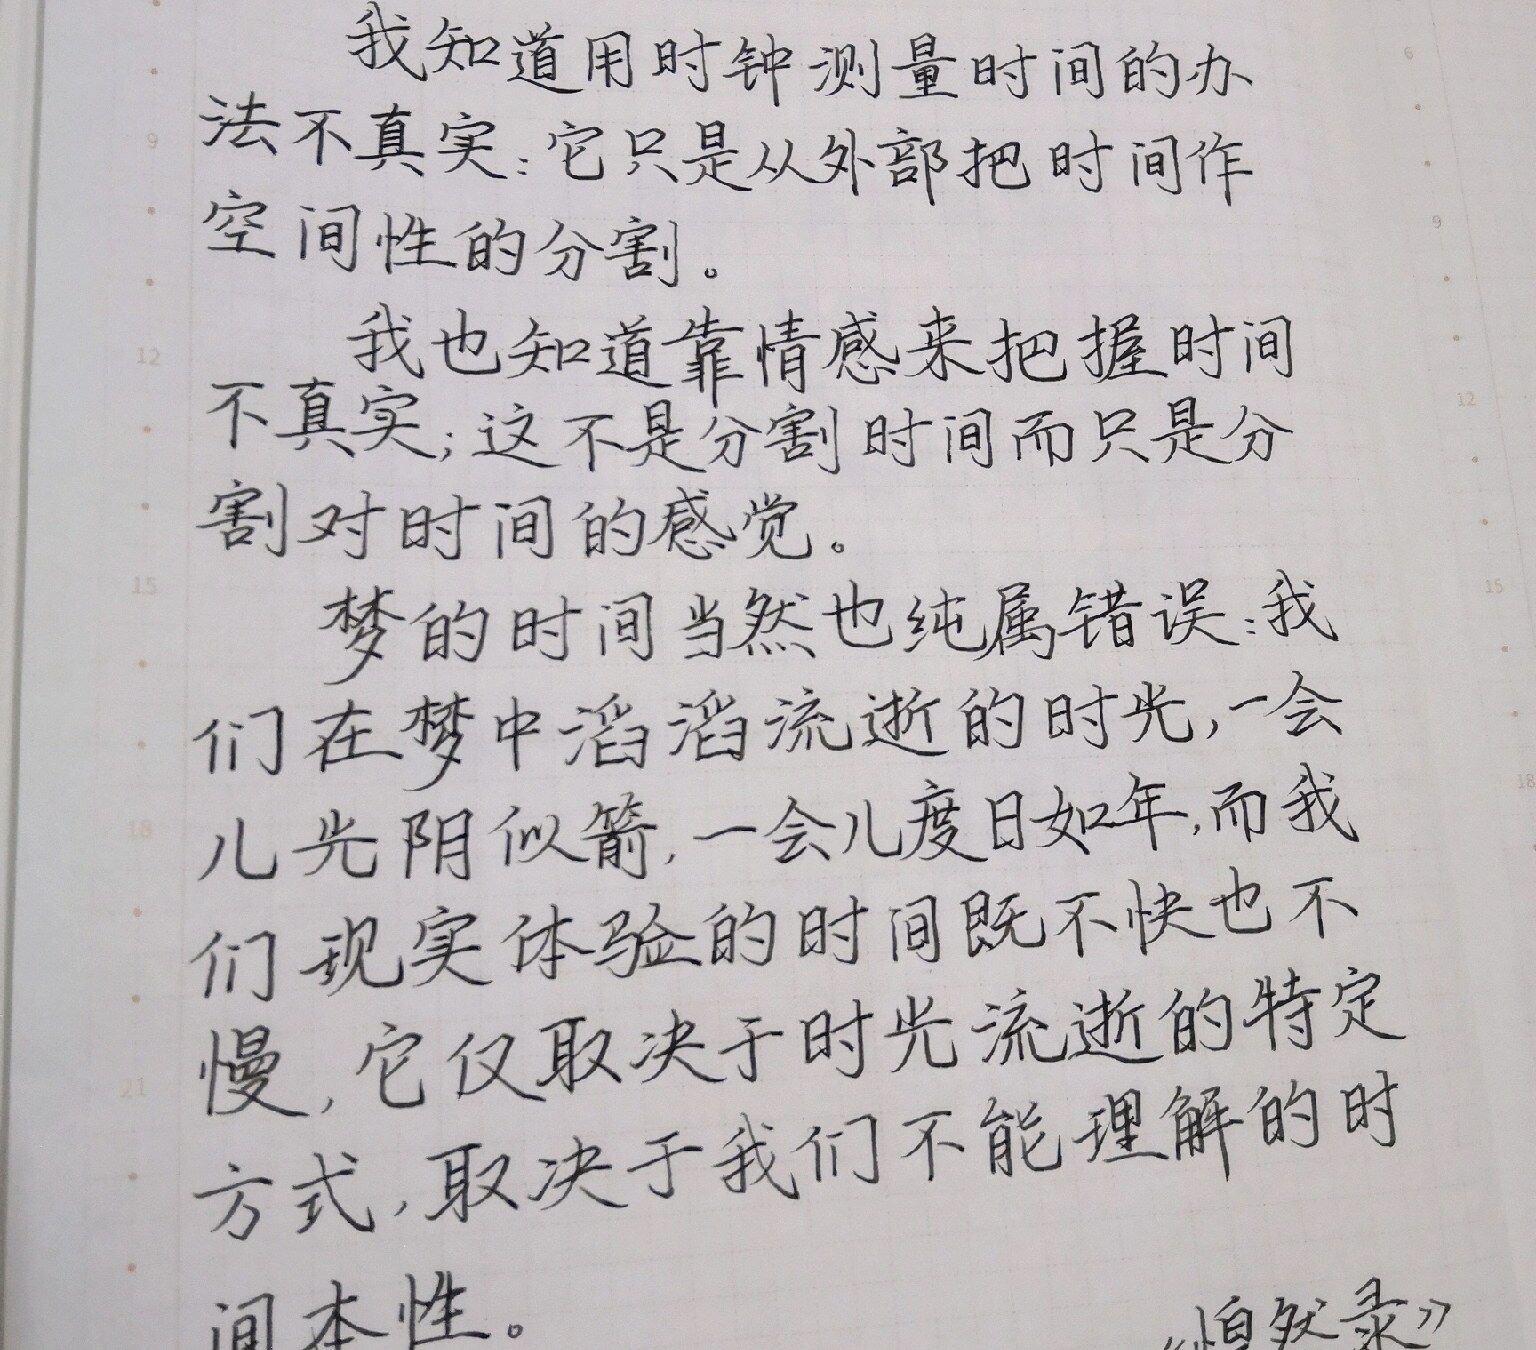 我知道用时钟测量时间的办
法不真实:它只是从外部把时间作
空间性的分割。
我也知道靠情感来把握时间
不真实;这不是分割时间而只是分
割对时间的感觉。
梦的时间当然也纯属错误:我
们在梦中滔滔流逝的时光,一会
儿光阴似箭,一会儿度日如年,而我
们现实体验的时间既不快也不
慢,它仅取决于时光流逝的特定
方式,取决于我们不能理解的时
间本性。
《惶然录》
6
9
9
12
12
15
15
18
18
21